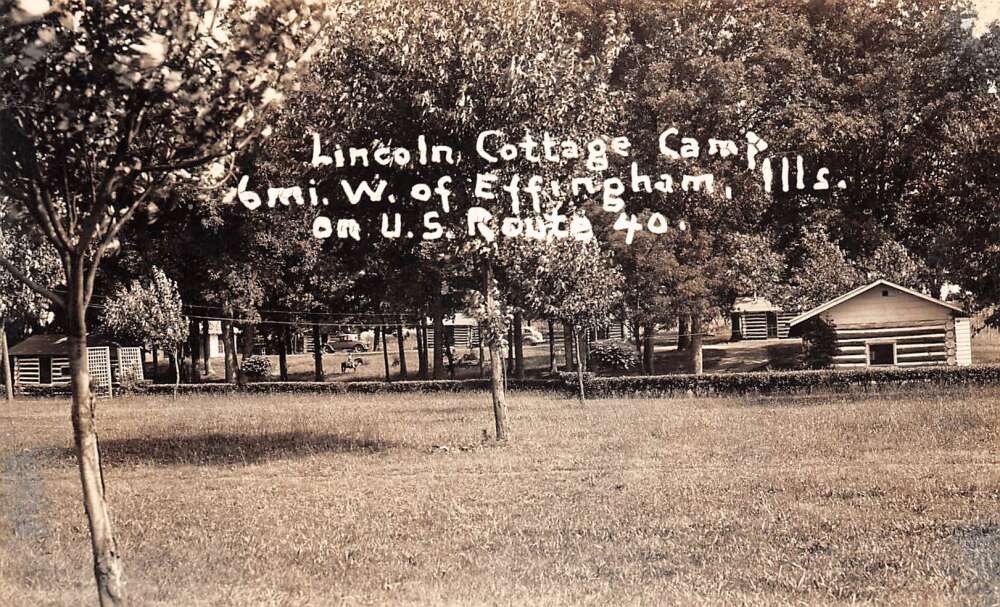 Lincoln Cottage Camp
6 mi. W. of Effingham, Ills.
on U.S. Route 40.